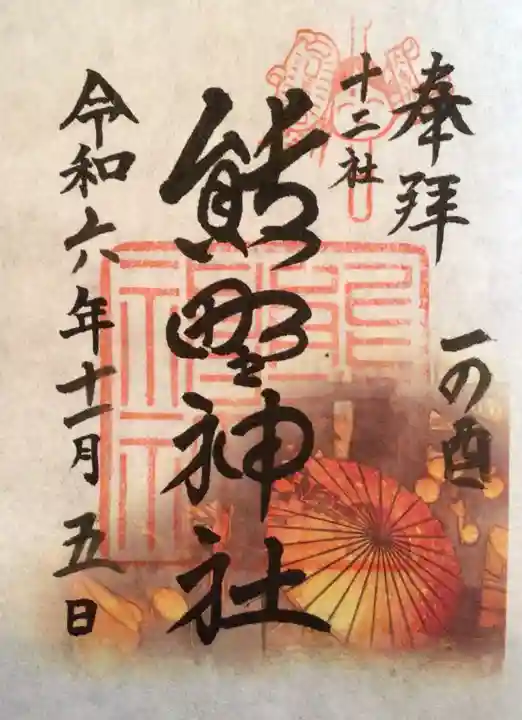 奉拝
一の酉
十二社
熊野神社
令和六年十一月五日